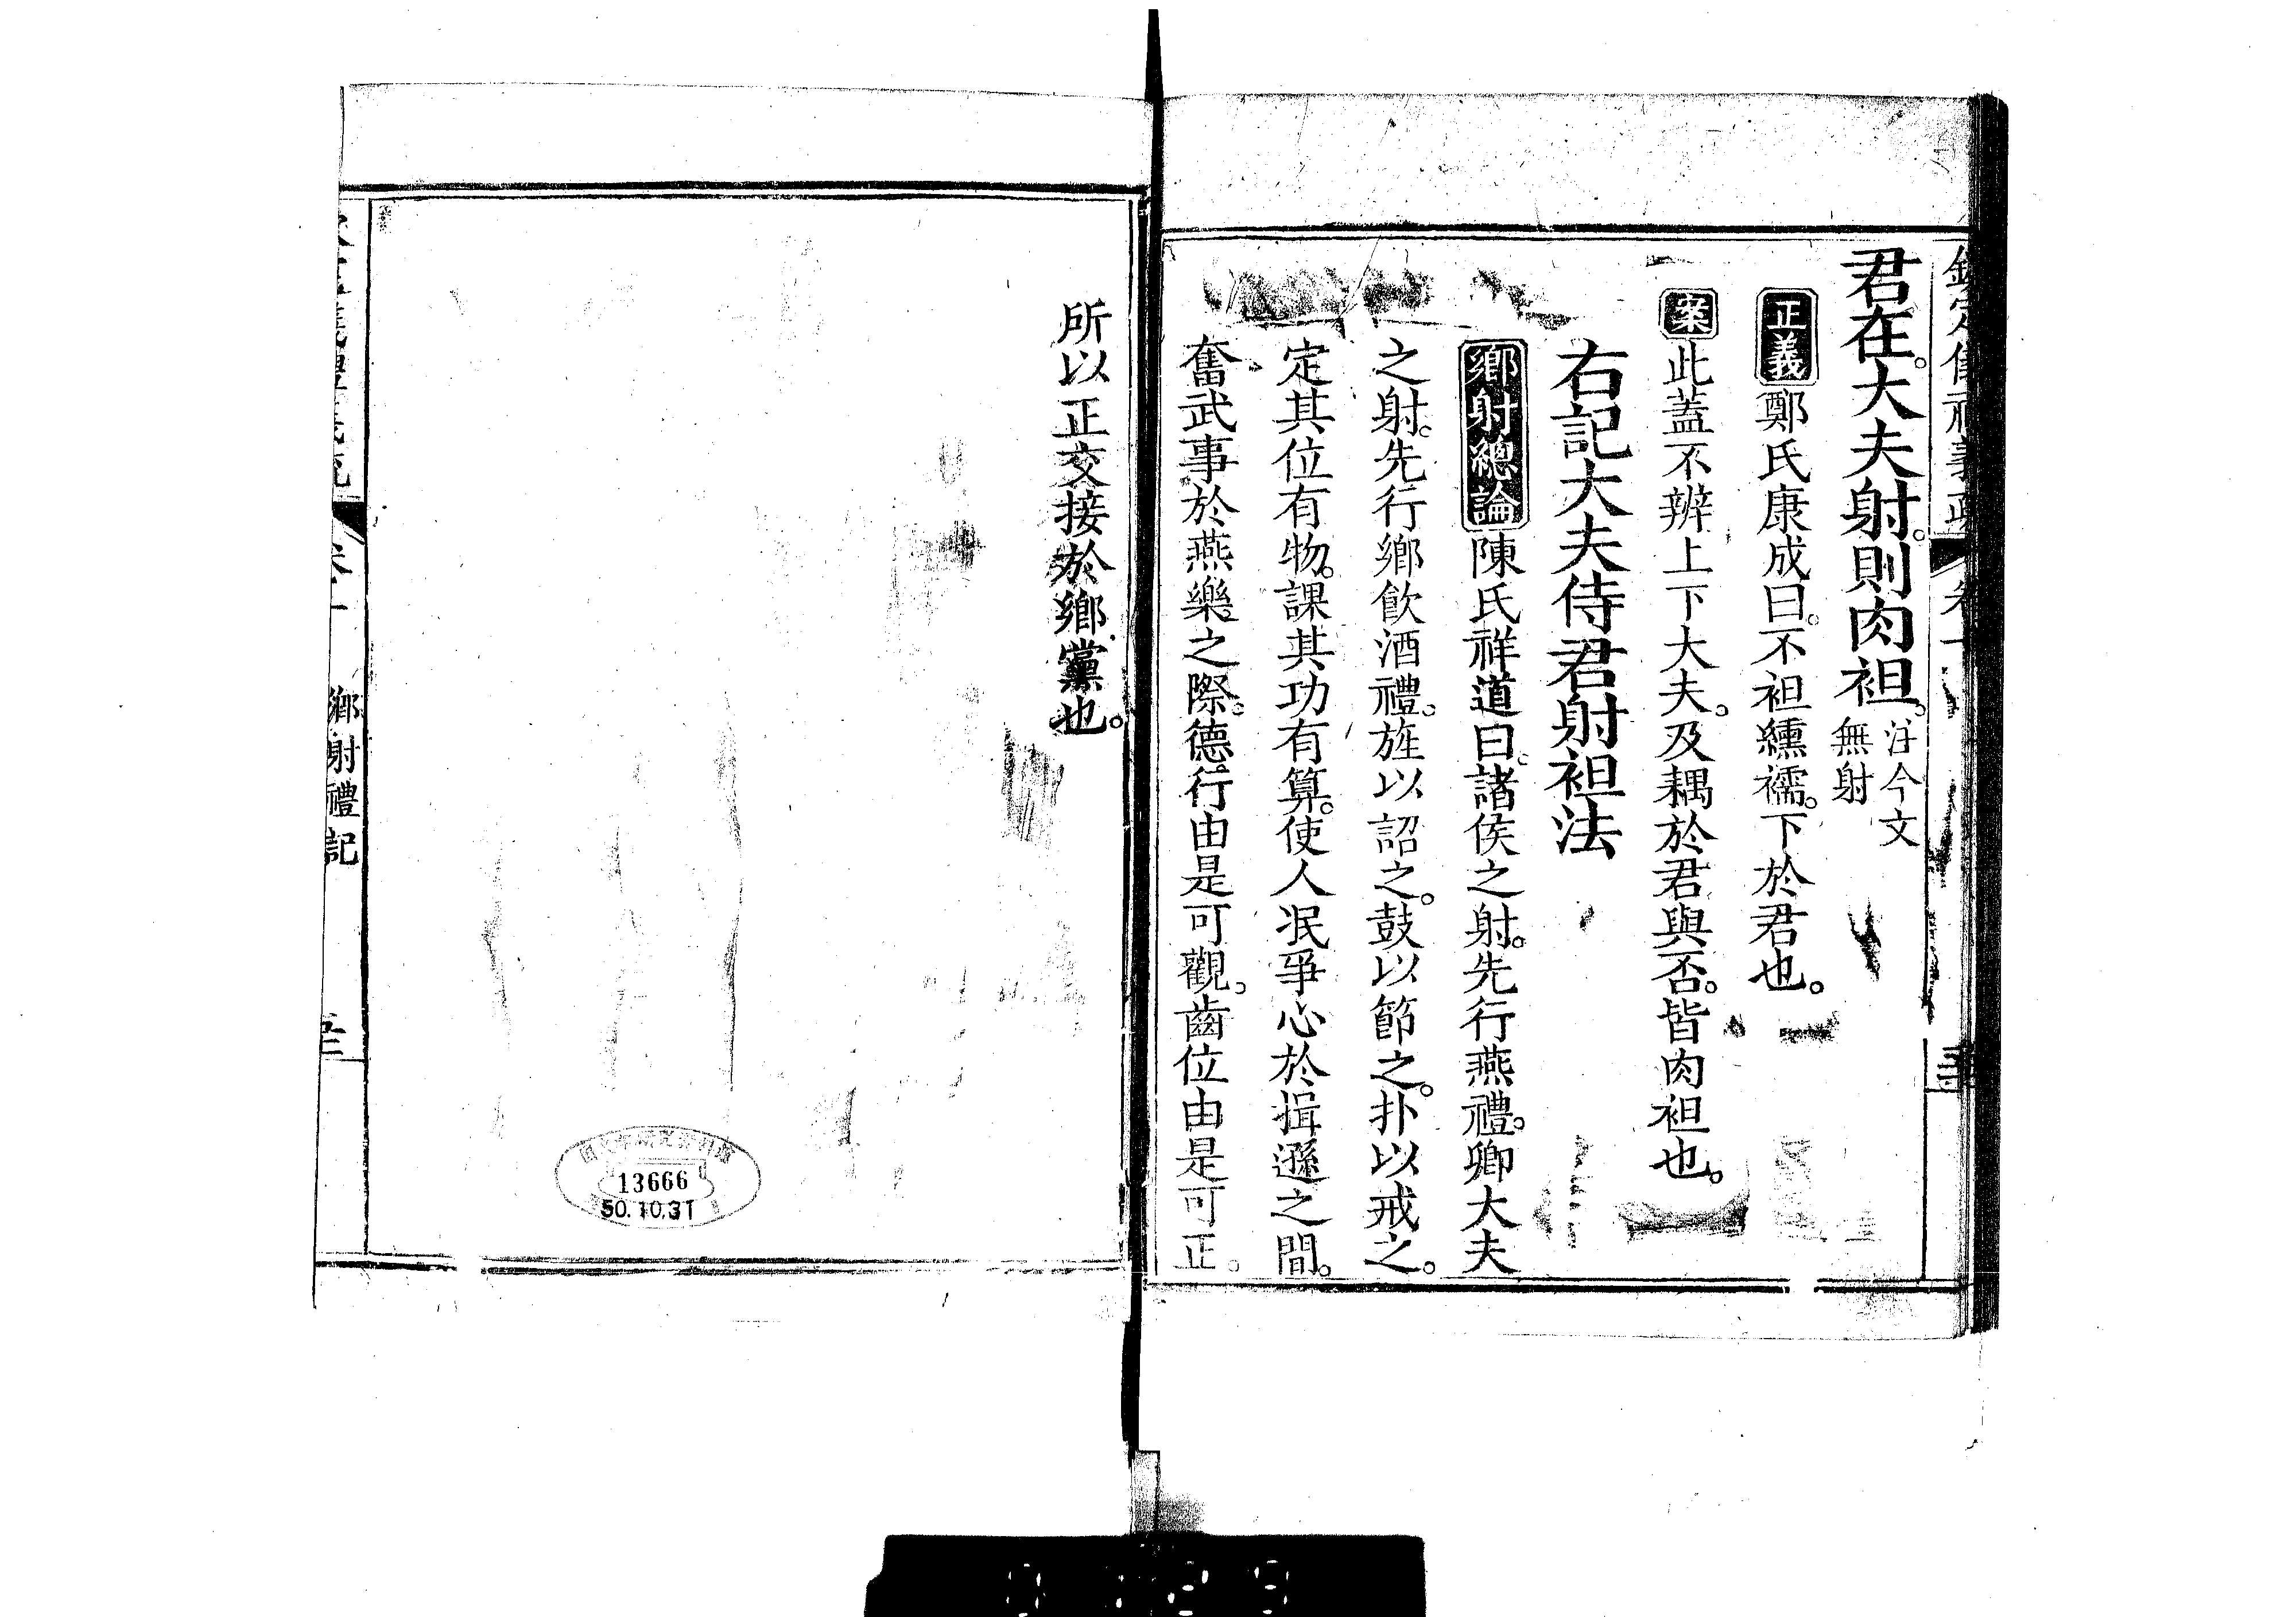 君在。大夫射。則肉袒。注今文
無射
正義鄭氏康成曰。不袒纁襦。下於君也。
案此蓋不辨上下大夫。及耦於君與否。皆肉袒也。
右記大夫侍君射袒法
鄉射總論陳氏祥道曰。諸侯之射。先行燕禮。卿大夫
之射。先行鄉飲酒禮。旌以詔之。鼓以節之。扑以戒之。
定其位有物。課其功有算。使人泯爭心於揖遜之間。
奮武事於燕樂之際。德行由是可觀。齒位由是可正。
所以正交接於鄉黨也。
鄉射禮記
13666
50.10.31